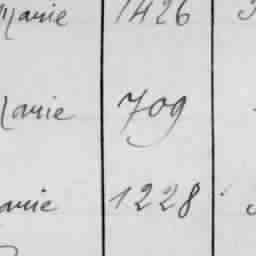 Marie 1426
Marie 709
Marie 1228